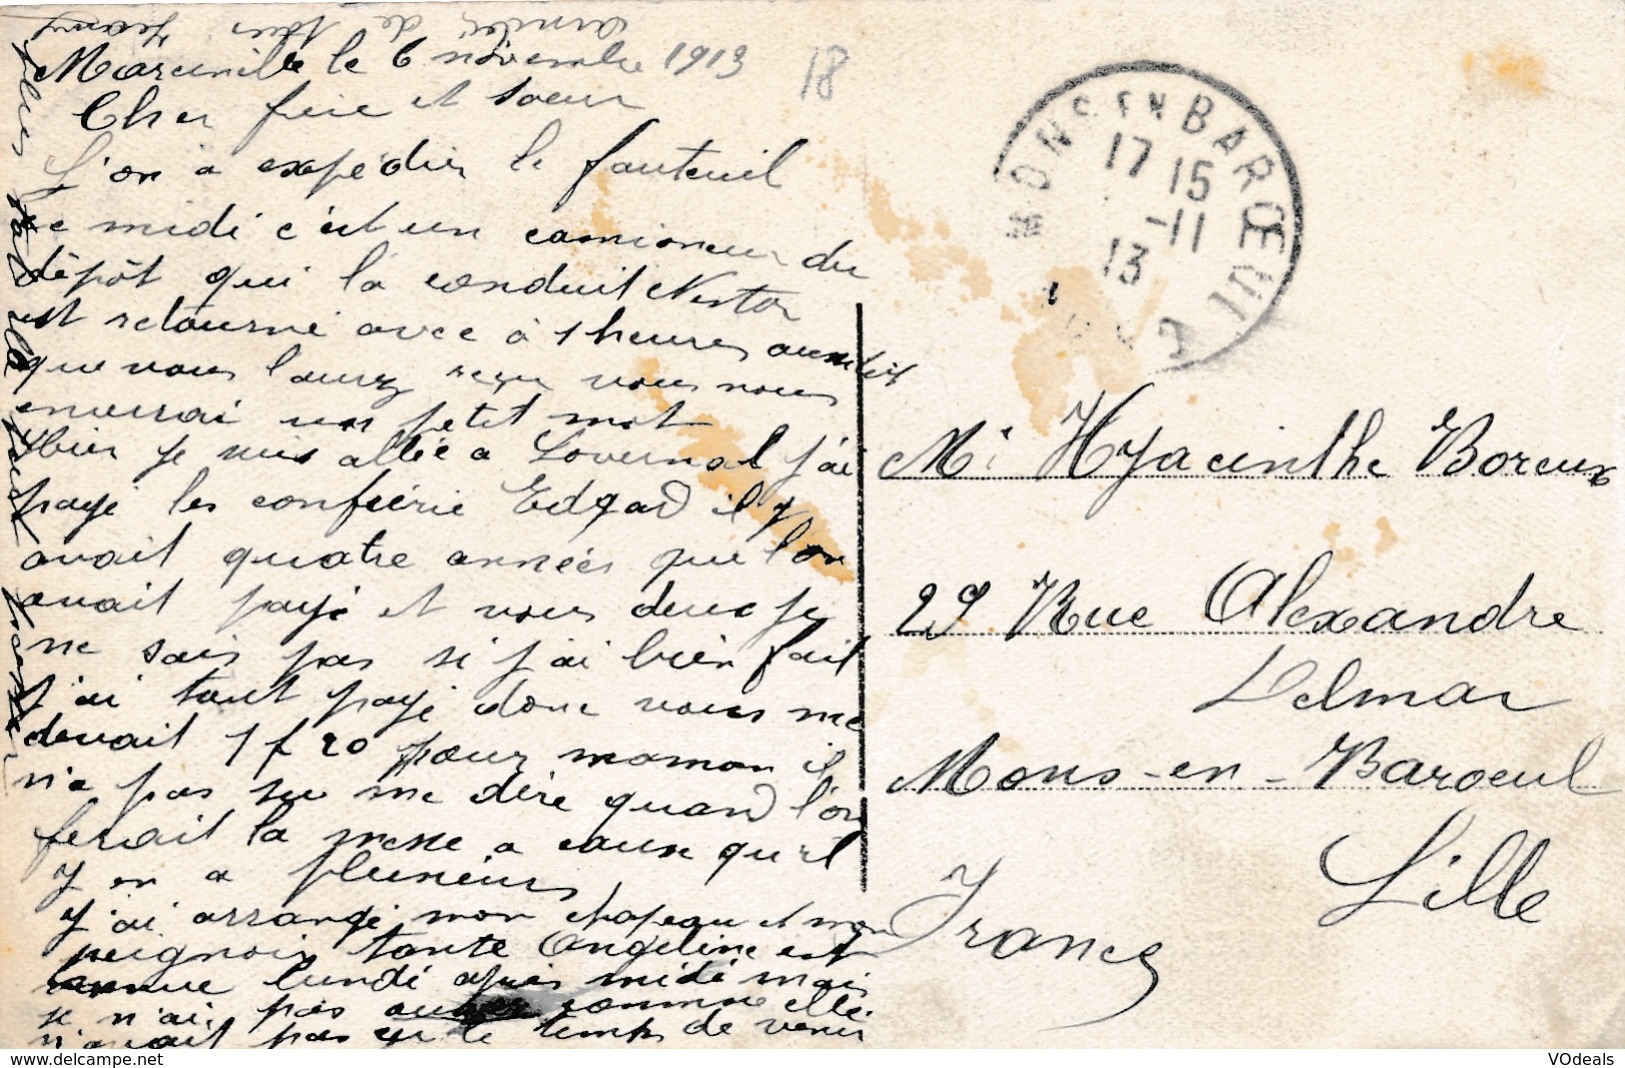 Marcunville le 6 novembre 1913
18
Cher frere et soeur
L'on a expédier le fauteuil
ce midi c'est un camioneur du
dépôt qui la conduit Nestor
est retourné avec à 1 heures aussitôt
que vous l'aurez reçu vous nous
enverrai un petit mot
Hier je suis allée a Lovernal j'ai
payé les confrérie Edgard il y
avait quatre années que l'on
avait payé et vous deux je
ne sais pas si j'ai bien fait
j'ai tout payé donc vous me
devait 1 f 20 pour maman il
n'a pas su me dire quand l'on
ferait la messe a cause qu'il
y en a plusieurs
j'ai arrangé mon chapeau et mon
peignoir tante Angeline est
venue lundi après midi mais
je n'ai pas comme elle
n'avait pas eu le temps de venir
de
Jeanne
MONS EN BARŒUL
17 15
-11
13
Mr Hyacinthe Boreux
29 Rue Alexandre
Delmar
Mons-en-Baroeul
Lille
France
VOdeals